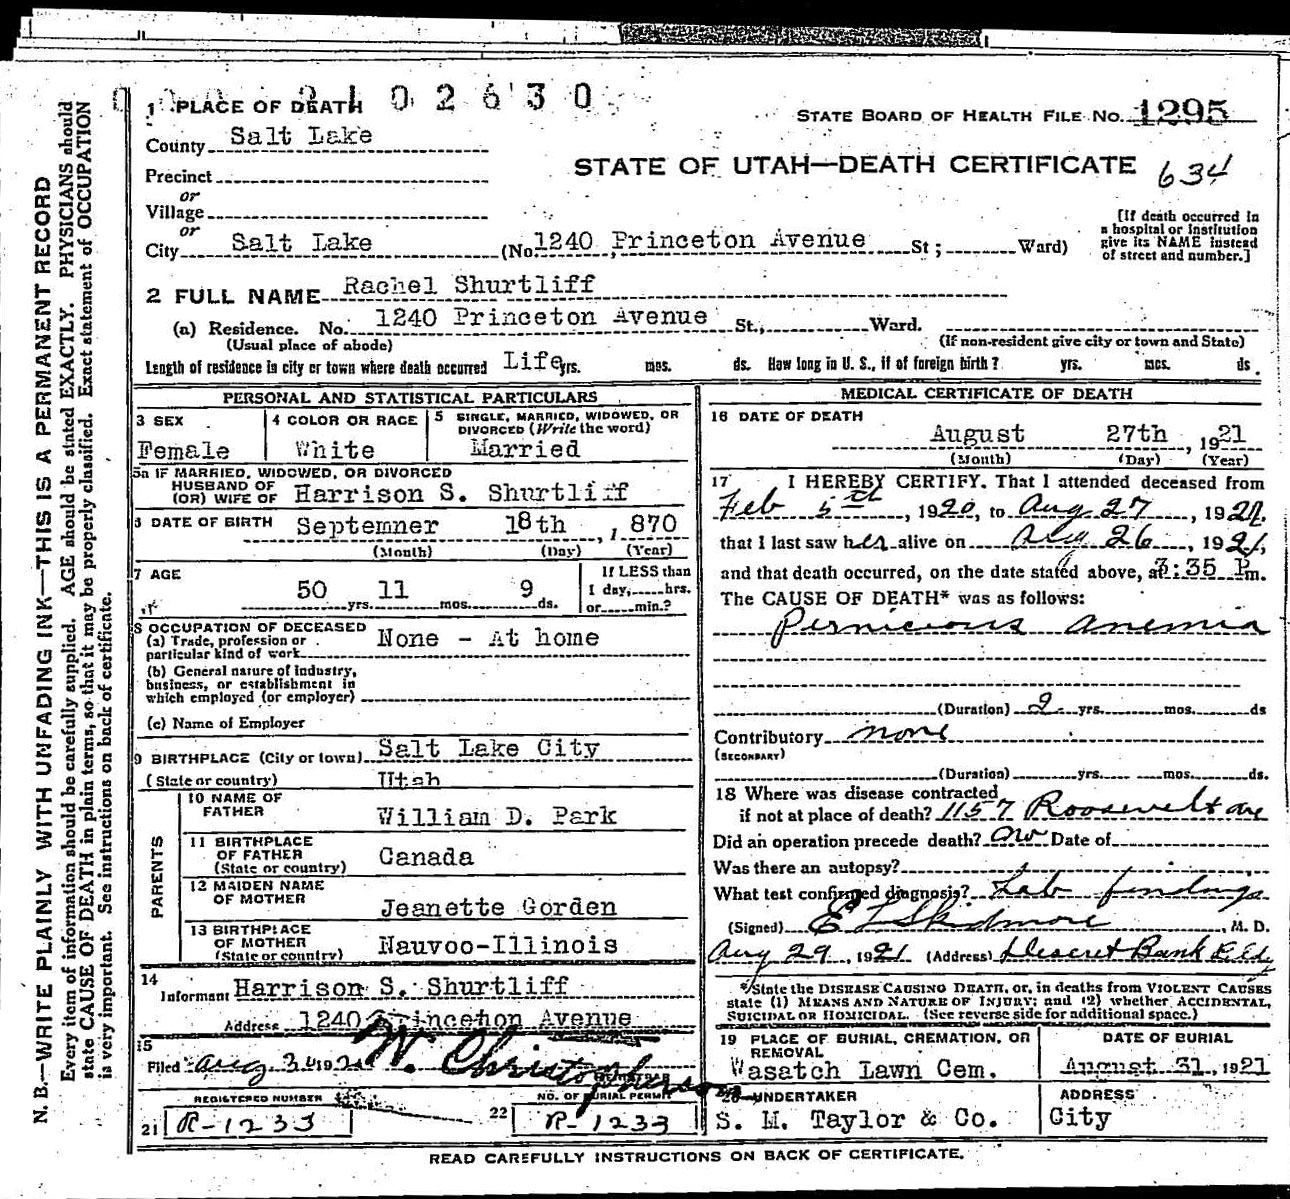 N. B.—WRITE PLAINLY WITH UNFADING INK—THIS IS A PERMANENT RECORD
Every item of information should be carefully supplied. AGE should be stated EXACTLY. PHYSICIANS should
state CAUSE OF DEATH in plain terms, so that it may be properly classified. Exact statement of OCCUPATION
is very important. See instructions on back of certificate.
0 2 6 3 0
1 PLACE OF DEATH
STATE BOARD OF HEALTH FILE No. 1295
County Salt Lake
STATE OF UTAH—DEATH CERTIFICATE 634
Precinct
or
Village
or
City Salt Lake (No. 1240 Princeton Avenue St; Ward)
[If death occurred in
a hospital or institution
give its NAME instead
of street and number.]
2 FULL NAME Rachel Shurtliff
(a) Residence. No. 1240 Princeton Avenue St., Ward.
(Usual place of abode) (If non-resident give city or town and State)
Length of residence in city or town where death occurred Life yrs. mos. ds. How long in U. S., if of foreign birth? yrs. mos. ds.
PERSONAL AND STATISTICAL PARTICULARS
3 SEX
Female
4 COLOR OR RACE
White
5 SINGLE, MARRIED, WIDOWED, OR
DIVORCED (Write the word)
Married
5a IF MARRIED, WIDOWED, OR DIVORCED
HUSBAND OF
(OR) WIFE OF Harrison S. Shurtliff
6 DATE OF BIRTH Septemner 18th, 1870
(Month) (Day) (Year)
7 AGE
50 yrs. 11 mos. 9 ds.
If LESS than
1 day, hrs.
or min.?
8 OCCUPATION OF DECEASED
(a) Trade, profession or
particular kind of work None - At home
(b) General nature of industry,
business, or establishment in
which employed (or employer)
(c) Name of Employer
9 BIRTHPLACE (City or town) Salt Lake City
(State or country) Utah
PARENTS
10 NAME OF
FATHER William D. Park
11 BIRTHPLACE
OF FATHER
(State or country) Canada
12 MAIDEN NAME
OF MOTHER Jeanette Gorden
13 BIRTHPLACE
OF MOTHER
(State or country) Nauvoo-Illinois
14
Informant Harrison S. Shurtliff
Address 1240 Princeton Avenue
15
Filed Aug. 192 W. Christopherson
REGISTERED NUMBER
21 R-1233
NO. OF BURIAL PERMIT
22 R-1233
MEDICAL CERTIFICATE OF DEATH
16 DATE OF DEATH
August 27th, 1921
(Month) (Day) (Year)
17 I HEREBY CERTIFY, That I attended deceased from
Feb 5th, 1920, to Aug 27, 1921.
that I last saw her alive on Aug 26, 1921,
and that death occurred, on the date stated above, at 3:35 P.m.
The CAUSE OF DEATH* was as follows:
Pernicious anemia
(Duration) 2 yrs. mos. ds
Contributory none
(SECONDARY)
(Duration) yrs. mos. ds.
18 Where was disease contracted
if not at place of death? 1157 Roosevelt ave
Did an operation precede death? no Date of
Was there an autopsy?
What test confirmed diagnosis? Lab findings
(Signed) Skidmore, M. D.
Aug 29, 1921 (Address) Deseret Bank Bldg
*State the DISEASE CAUSING DEATH, or, in deaths from VIOLENT CAUSES
state (1) MEANS AND NATURE OF INJURY; and (2) whether ACCIDENTAL,
SUICIDAL OR HOMICIDAL. (See reverse side for additional space.)
19 PLACE OF BURIAL, CREMATION, OR
REMOVAL
Wasatch Lawn Cem.
DATE OF BURIAL
August 31, 1921
20 UNDERTAKER
S. M. Taylor & Co.
ADDRESS
City
READ CAREFULLY INSTRUCTIONS ON BACK OF CERTIFICATE.